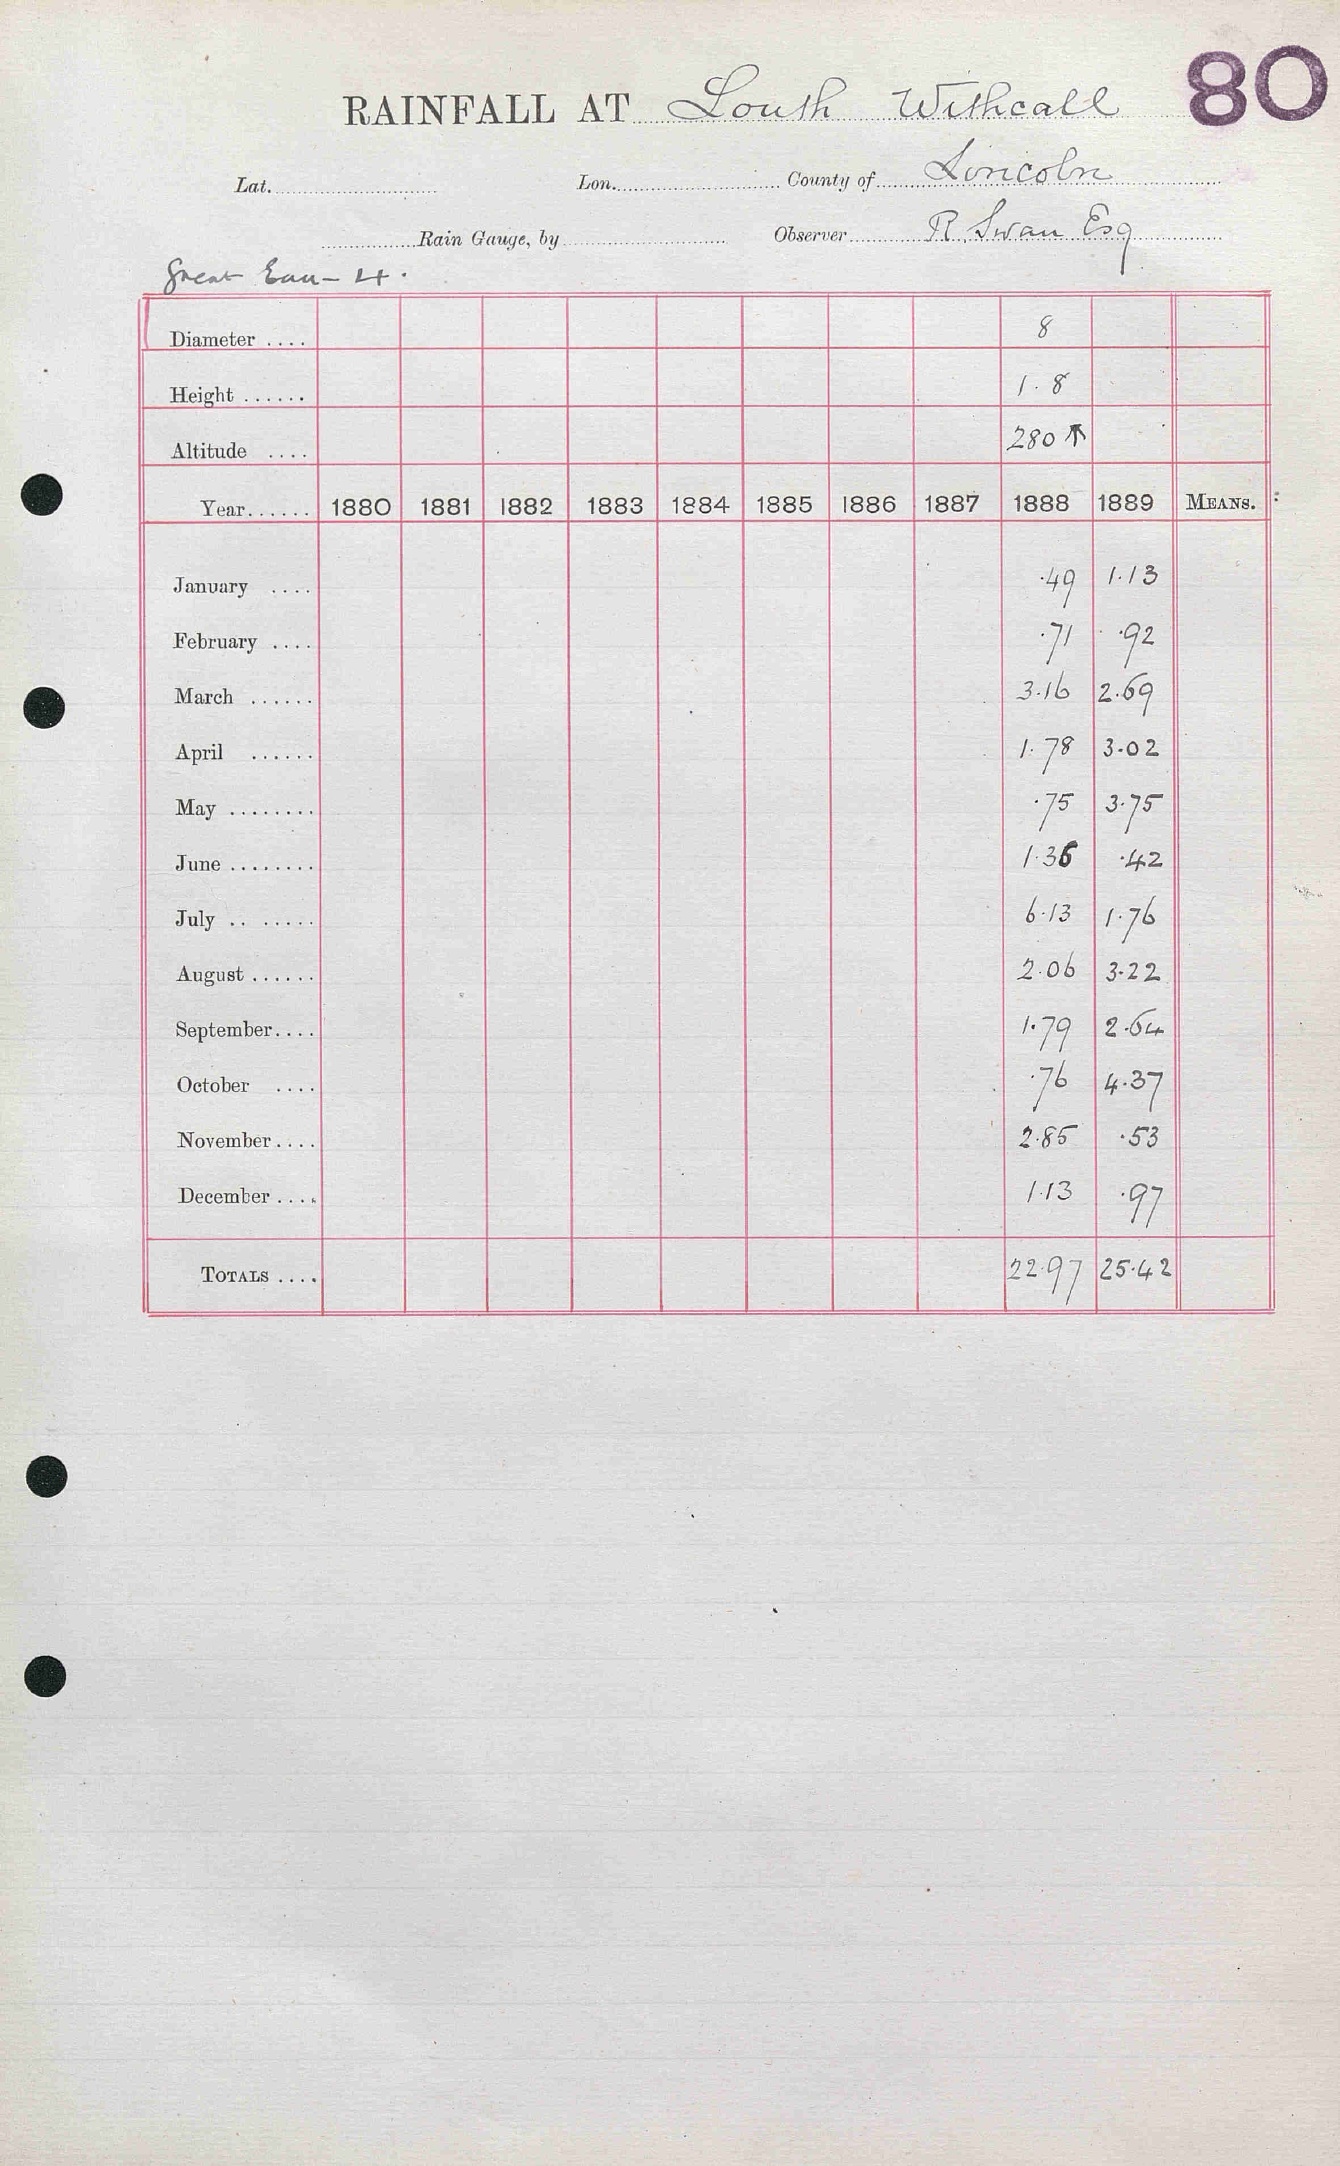 80
RAINFALL AT Louth Withcall
Lat. Lon. County of Lincoln
Rain Gauge, by Observer R. Swan Esq
Great Eau - 4.
Diameter .... 8
Height ...... 1.8
Altitude .... 280 ↑
Year...... 1880 1881 1882 1883 1884 1885 1886 1887 1888 1889 MEANS.
January .... .49 1.13
February .... .71 .92
March ...... 3.16 2.69
April ...... 1.78 3.02
May ........ .75 3.75
June ........ 1.36 .42
July .. ...... 6.13 1.76
August ...... 2.06 3.22
September.... 1.79 2.64
October .... .76 4.37
November.... 2.85 .53
December .... 1.13 .97
TOTALS .... 22.97 25.42